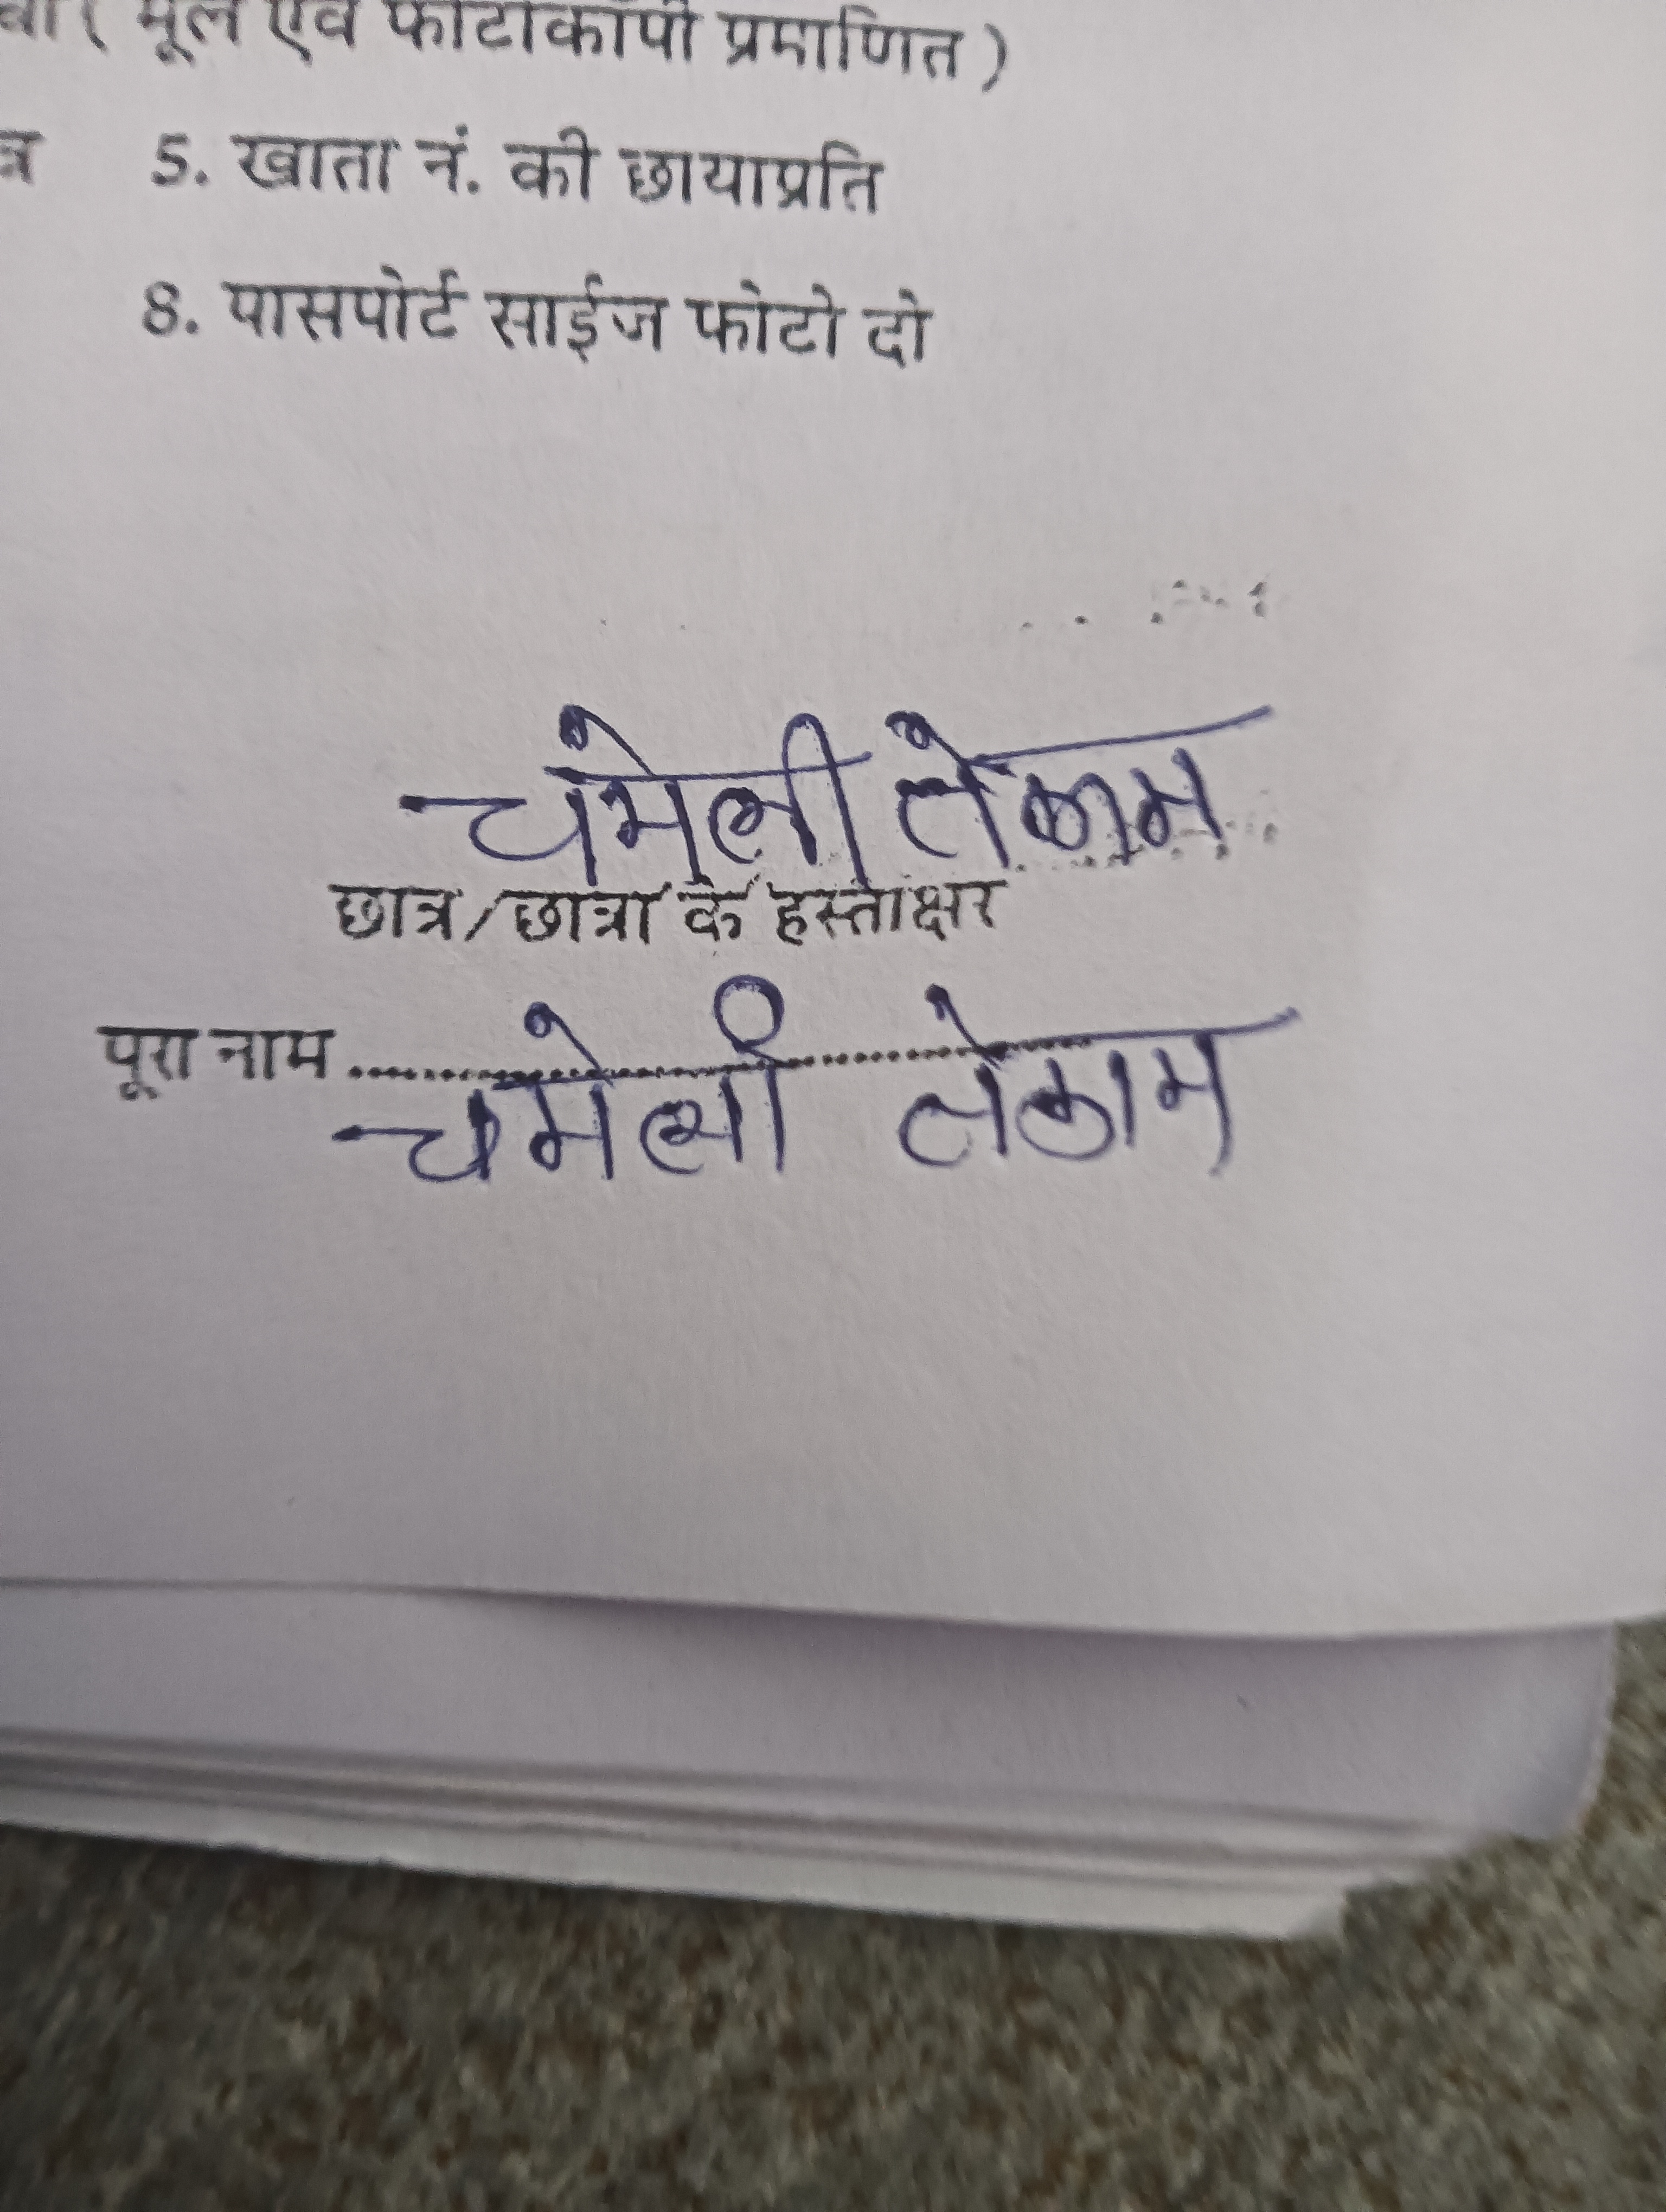 ( मूल एवं फोटोकॉपी प्रमाणित )
त्र 5. खाता नं. की छायाप्रति
8. पासपोर्ट साईज फोटो दो
चमेली तेकाम
छात्र/छात्रा के हस्ताक्षर
पूरा नाम ........................
चमेली तेकाम